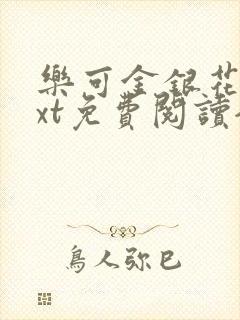 樂可金銀花
xt免費閱讀
鳥人弥巳